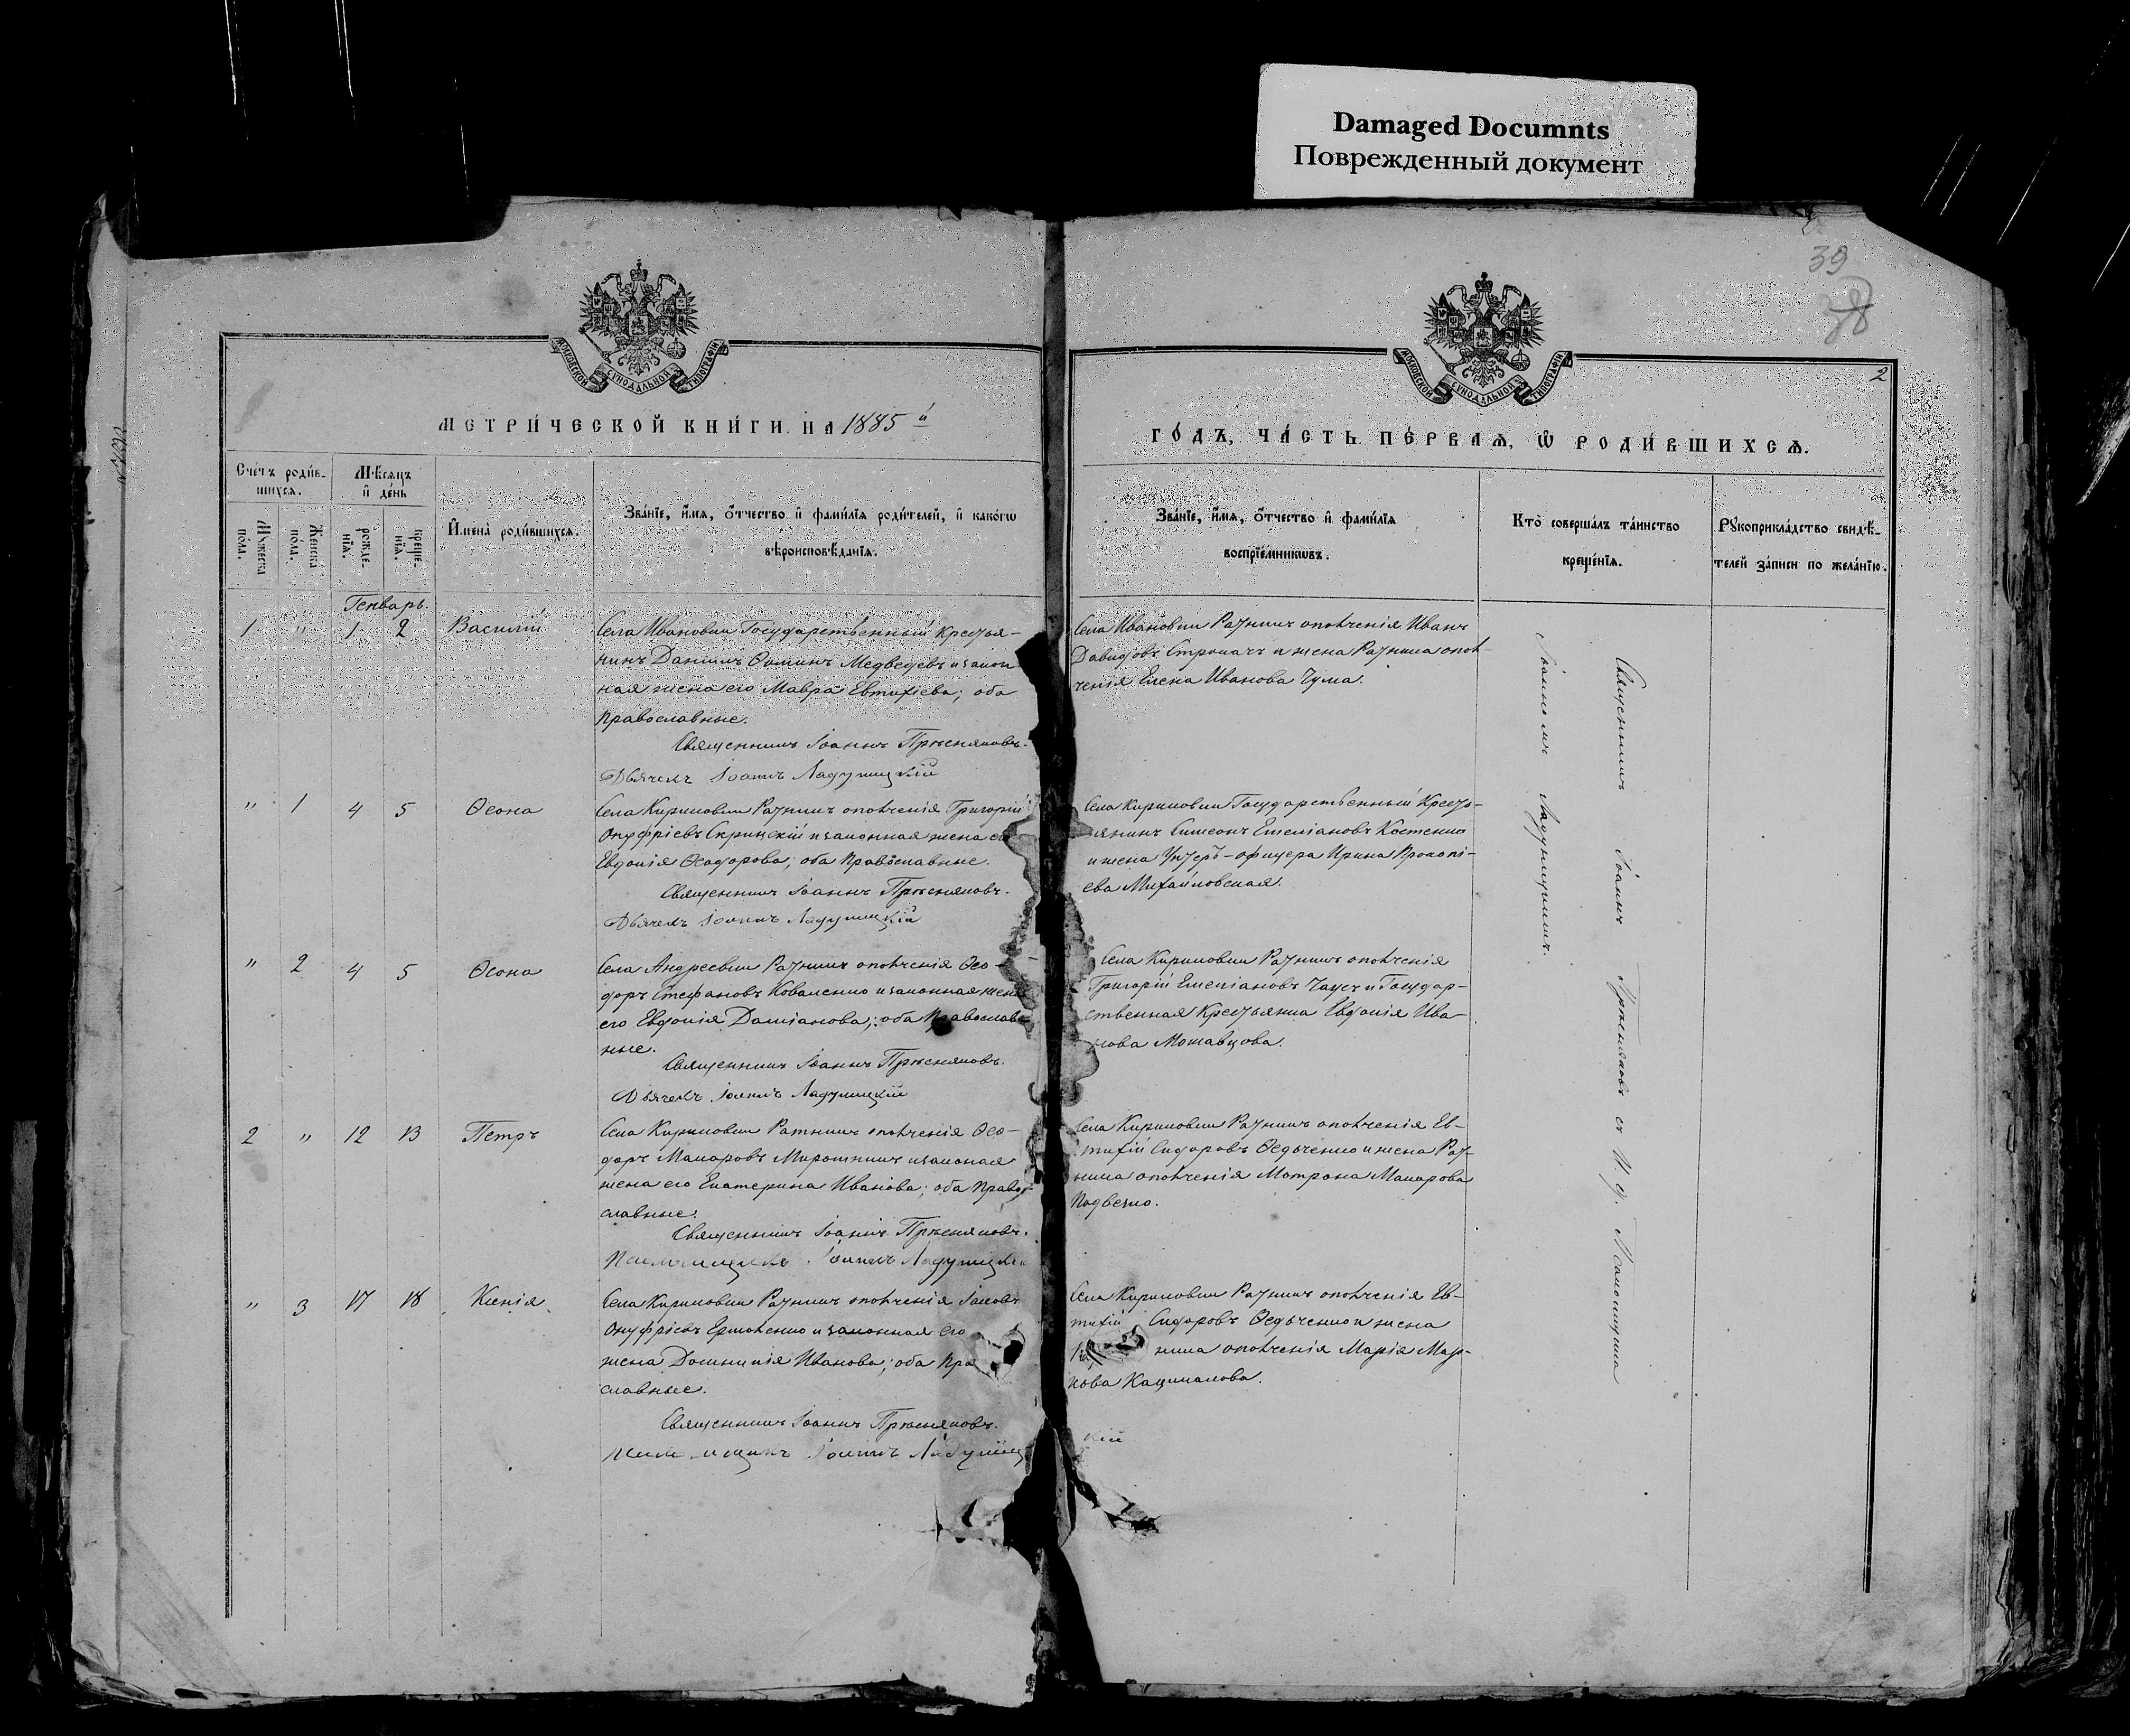 Damaged Documnts
Поврежденный документ
39
38
2
МОСКОВСКОЙ СѴНОДАЛЬНОЙ ТИПОГРАФІИ
МОСКОВСКОЙ СѴНОДАЛЬНОЙ ТИПОГРАФІИ
МЕТРИ́ЧЕСКОЙ КНИ́ГИ НА 1885 й
ГО́ДЪ, ЧА́СТЬ ПЕ́РВАѦ, Ѡ҆ РОДИ́ВШИХСѦ.
Сче́тъ роди́в-
шихсѧ.
Мѣ́сѧцъ
и҆ де́нь
Мꙋжеска по́ла.
Же́нска по́ла.
рожде́-
нїѧ.
креще́-
нїѧ.
И҆мена̀ роди́вшихсѧ.
Зва́нїе, и҆́мѧ, ѻ҆́тчество и҆ фами́лїѧ роди́телей, и҆ како́гѡ
вѣроисповѣ́данїѧ.
Зва́нїе, и҆́мѧ, ѻ҆́тчество и҆ фами́лїѧ
воспрїе́мникѡвъ.
Кто̀ соверша́лъ та́инство
креще́нїѧ.
Рꙋкоприкла́дство свидѣ́-
телей за́писи по жела́нїю.
Генварь.
1 " 1 2 Василій
Села Ивановки Государственный Крестья-
нинъ Даніилъ Ѳоминъ Медведевъ и закон
ная жена его Мавра Евтихіева; оба
православные.
Священникъ Іоаннъ Прѣсняковъ.
Дьячекъ Іоаннъ Ладухицкій
Села Ивановки Ратникъ ополченія Иванъ
Давидовъ Стрикачъ и жена Ратника опол-
ченія Елена Иванова Чума.
" 1 4 5 Ѳеона
Села Кириловки Ратникъ ополченія Григорій
Онуфріевъ Скрицскій и законная жена его
Евдокія Ѳеодорова; оба православные.
Священникъ Іоаннъ Прѣсняковъ.
Дьячекъ Іоаннъ Ладухицкій
Села Кириловки Государственный Кресть-
янинъ Симеонъ Емеліановъ Костенко
и жена Унтеръ-офицера Ирина Прокопі-
ева Михайловская.
" 2 4 5 Ѳеона
Села Андреевки Ратникъ ополченія Ѳео-
доръ Стефановъ Коваленко и законная жена
его Евдокія Даміанова; оба православ-
ные.
Священникъ Іоаннъ Прѣсняковъ.
Дьячекъ Іоаннъ Ладухицкій
Села Кириловки Ратникъ ополченія
Григорій Емеліановъ Чаусъ и Государ-
ственная Крестьянка Евдокія Ива-
нова
2 " 12 13 Петръ
Села Кириловки Ратникъ ополченія Ѳео-
доръ Макаровъ Мирошникъ и законая
жена его Екатерина Иванова; оба право-
славные.
Священникъ Іоаннъ Прѣсняковъ.
Псаломщикъ Іоаннъ Ладухицкій
Села Кириловки Ратникъ ополченія Ев-
тихій Сидоровъ Ѳедоченко и жена Рат-
ника ополченія Матрона Макарова
" 3 17 18 Ксенія
Села Кириловки Ратникъ ополченія Іаковъ
Онуфріевъ Ермоленко и законная его
жена Домникія Иванова; оба пра
славные.
Священникъ Іоаннъ Прѣсняковъ.
Іоаннъ Ладухицкій
Села Кириловки Ратникъ ополченія Ев-
тихій Сидоровъ Ѳедоченко и жена
ника ополченія Марія Мар-
кова
Священникъ Іоаннъ Прѣсняковъ съ И. д. Псаломщика
Іоанномъ Ладухицкимъ.